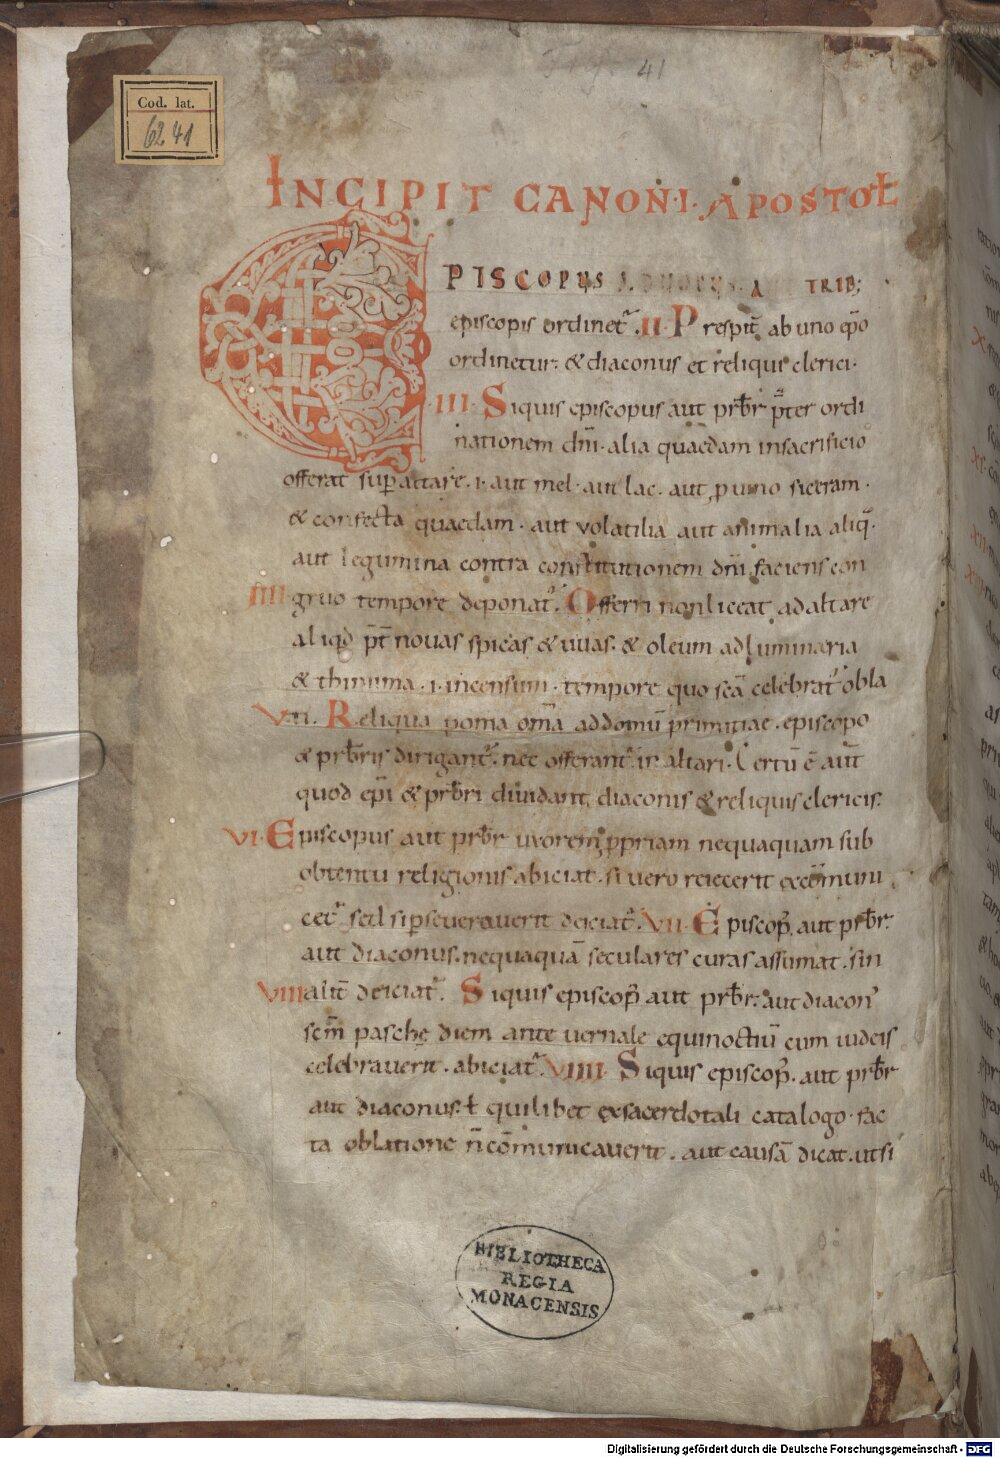 41
Cod. lat.
6241
INCIPIT CANONI APOSTOŁ
EPISCOPUS A DUOBUS A TRIB;
episcopis ordinet᷒. II. Prespit̅ ab uno ep̅o
ordinetur. & diaconus et reliqui clerici.
III. Siquis episcopus aut prb̅r p̅ter ordi
nationem dn̅i. alia quaedam insacrificio
offerat sup̱ altare. i. aut mel. aut lac. aut ꝓ uino siceram.
& confecta quaedam. aut volatilia aut animalia aliq̅.
aut legumina contra constitutionem dn̅i faciens con
gruo tempore deponat᷒. IIII. Offerri non liceat ad altare
aliqd p̅t novas spicas & uuas. & oleum ad luminaria
& thimiama. i. incensum. tempore quo sc̅a celebrat᷒ obla
V. ti. Reliqua poma om̅a ad domu̅ primitiae. episcopo
& prb̅ris dirigant᷒. nec offerant᷒ in altari. Certu̅ e̅ aut̅
quod ep̅i & prb̅ri dividant diaconis & reliquis clericis.
VI. Episcopus aut prb̅r uxorem ꝓpriam nequaquam sub
obtentu religionis abiciat. si vero reiecerit excom̅uni
cet᷒ sed si ꝑseveraverit deiciat᷒. VII. Episcop᷒ aut prb̅r.
aut diaconus. nequaqua̅ seculares curas assumat. sin
VIII alit̅ deiciat᷒. Siquis episcop᷒ aut prb̅r. aut diacon᷒
sc̅m paschę diem ante vernale equinoctiu̅ cum iudeis
celebraverit. abiciat᷒. VIIII. Siquis episcop᷒. aut prb̅r
aut diaconus. ł quilibet ex sacerdotali catalogo. fac
ta oblatione n̅ co̅municaverit. aut causa̅ dicat. ut si
BIBLIOTHECA
REGIA
MONACENSIS
Digitalisierung gefördert durch die Deutsche Forschungsgemeinschaft - DFG